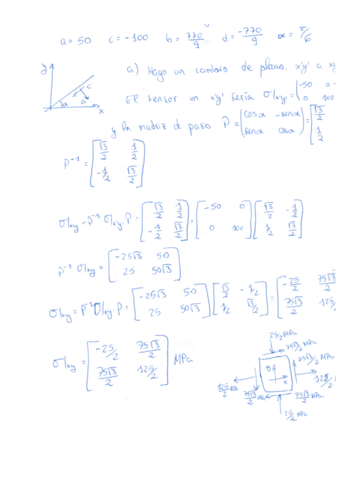 a = 50 c = -100 b = 770/9 d = -770/9 α = π/6
a) Hago un cambio de plano x'y' a xy
y x α c
El tensor en x'y' sería σxy = (-50 0
0 100
y la matriz d paso P = (cosα -senα
senα cosα) = [√3/2
1/2
P⁻¹ = [√3/2 1/2
-1/2 √3/2]
σxy = P⁻¹ σxy P = [√3/2 1/2
-1/2 √3/2] = [-50 0
0 100] [√3/2 -1/2
1/2 √3/2]
P⁻¹ σxy = [-25√3 50
25 50√3]
σxy = P⁻¹ σxy P = [-25√3 50
25 50√3] [√3/2 -1/2
1/2 √3/2] = [-25/2 75√3/2
75√3/2 125/2
σxy = [-25/2 75√3/2
75√3/2 125/2] MPa
25/2 MPa
75√3/2 MPa
75√3/2 MPa
125/2 MPa
125/2
75√3/2 MPa
75√3/2 MPa
25/2 MPa